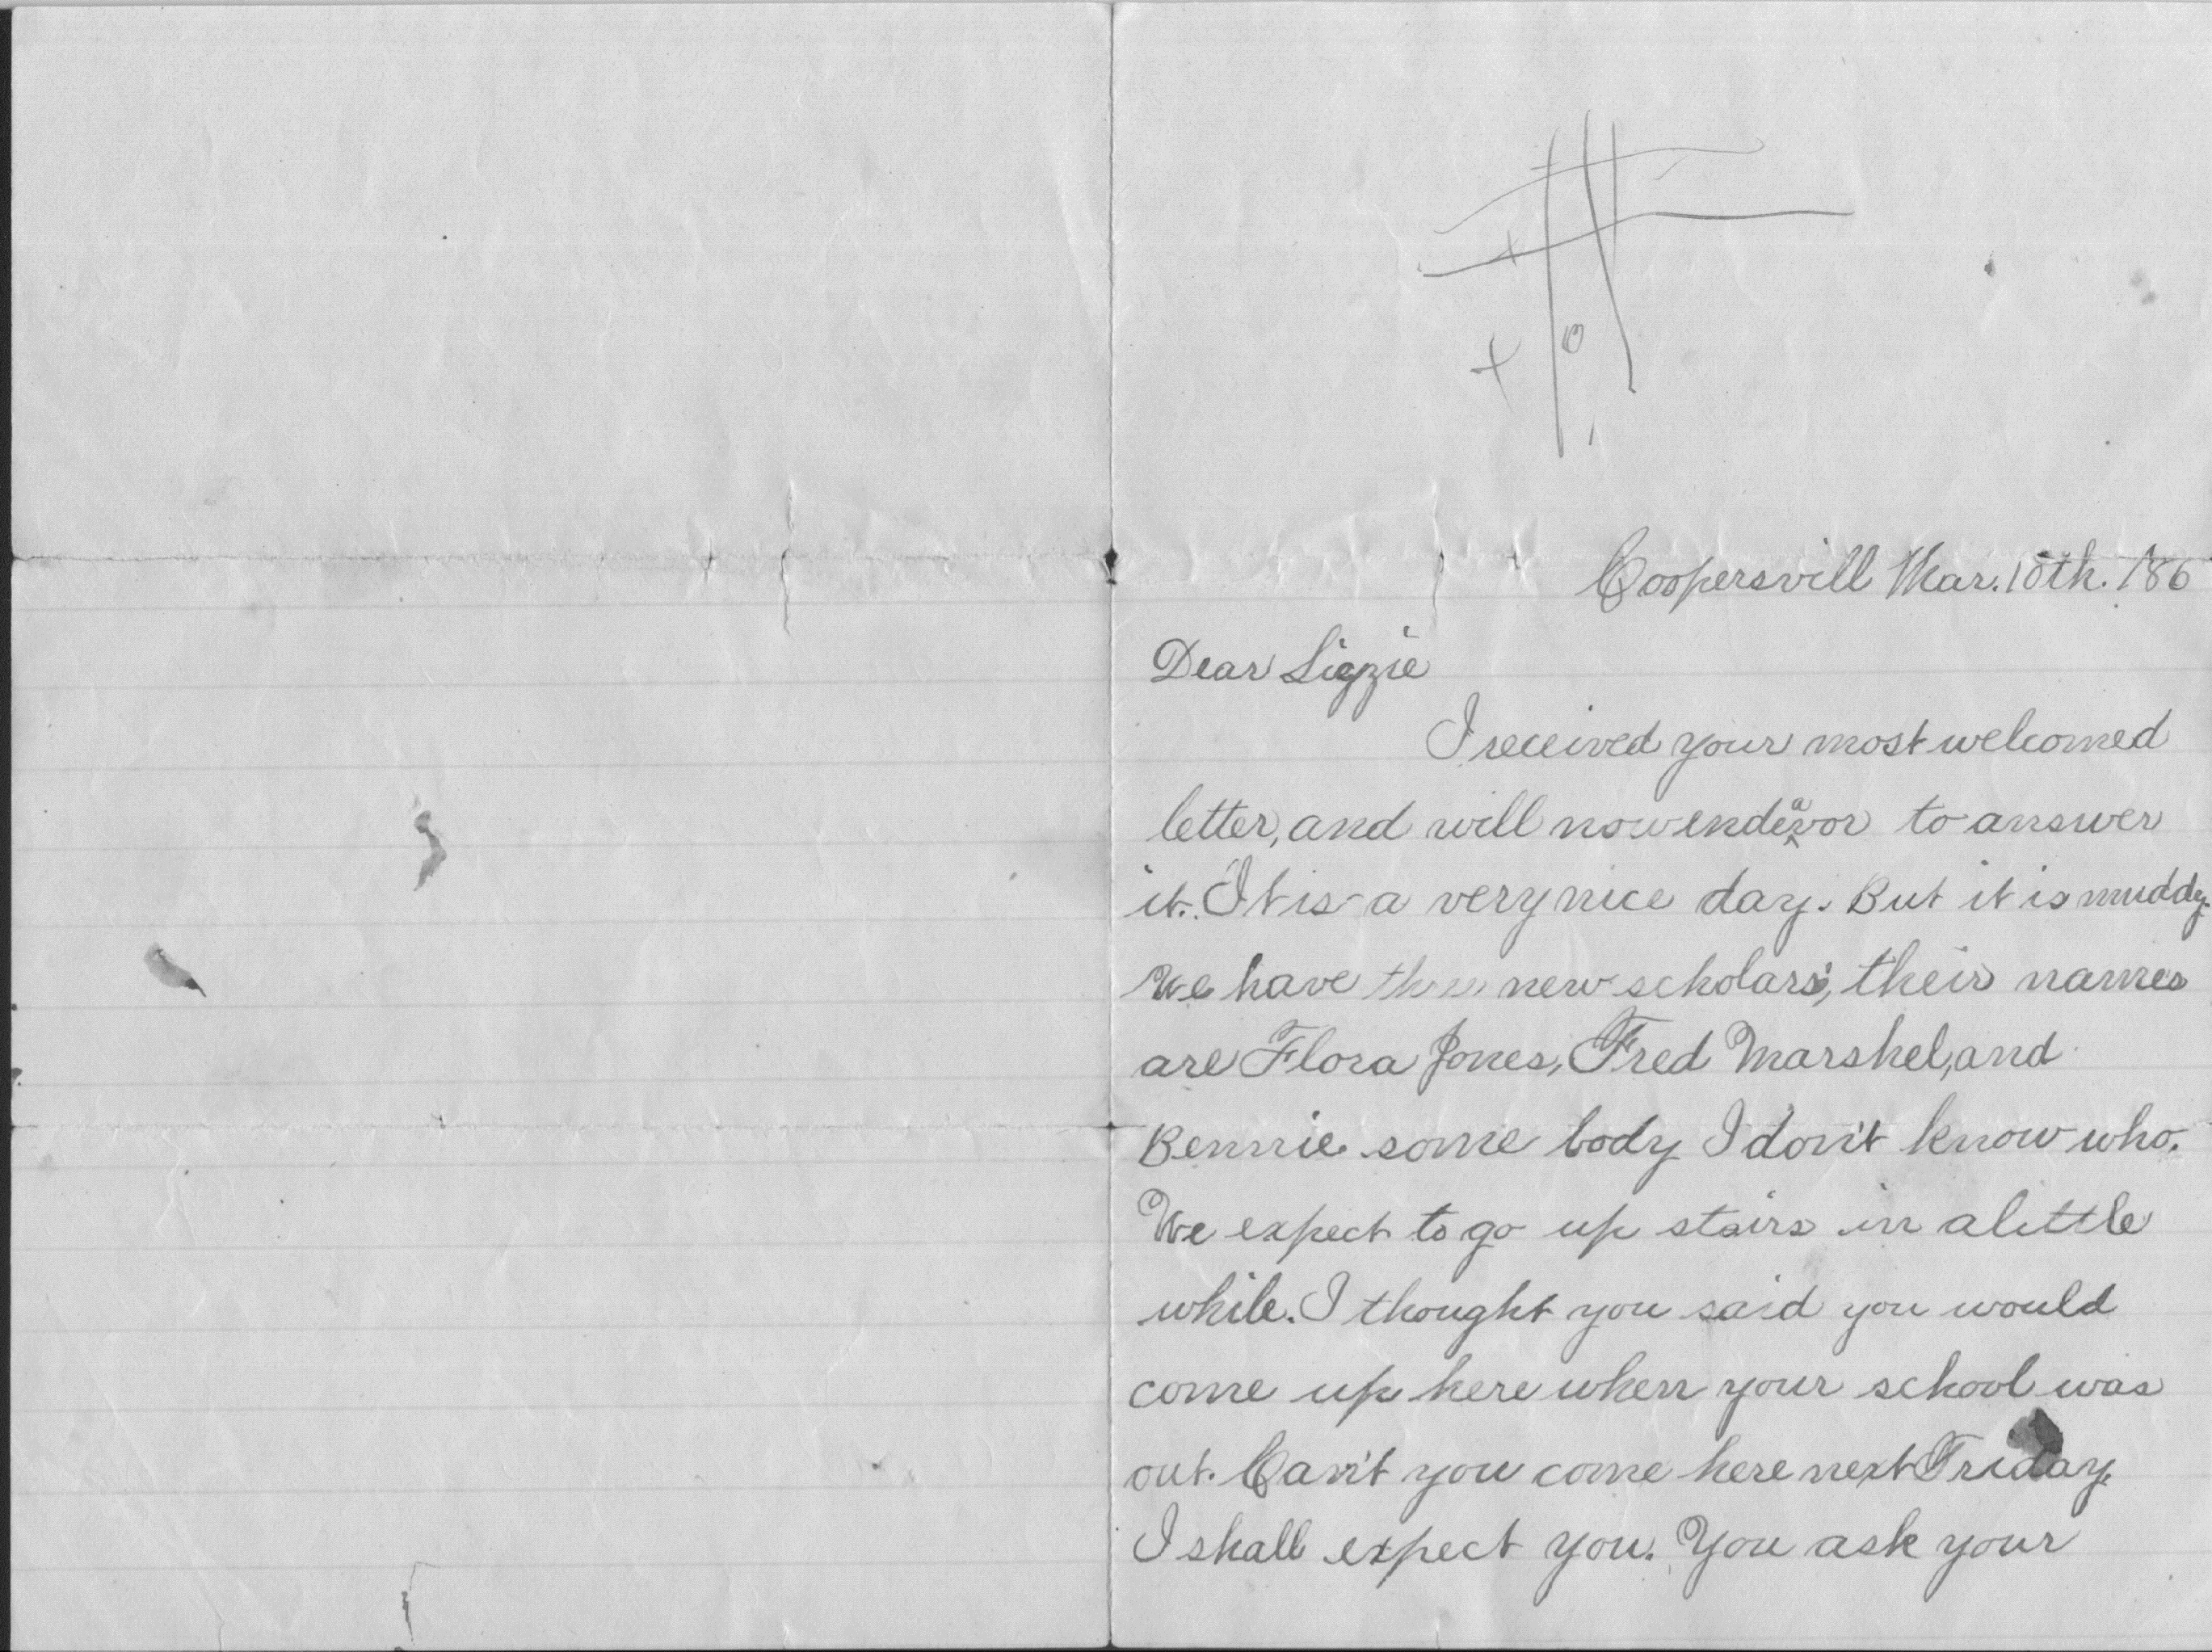 Coopersvill Mar. 10th. 186
Dear Lizzie
I received your most welcomed
letter, and will now endeavor to answer
it. It is a very nice day. But it is muddy.
We have three new scholars, their names
are Flora Jones, Fred Marshel, and
Bennie some body I don't know who.
We expect to go up stairs in a little
while. I thought you said you would
come up here when your school was
out. Can't you come here next Friday.
I shall expect you. You ask your